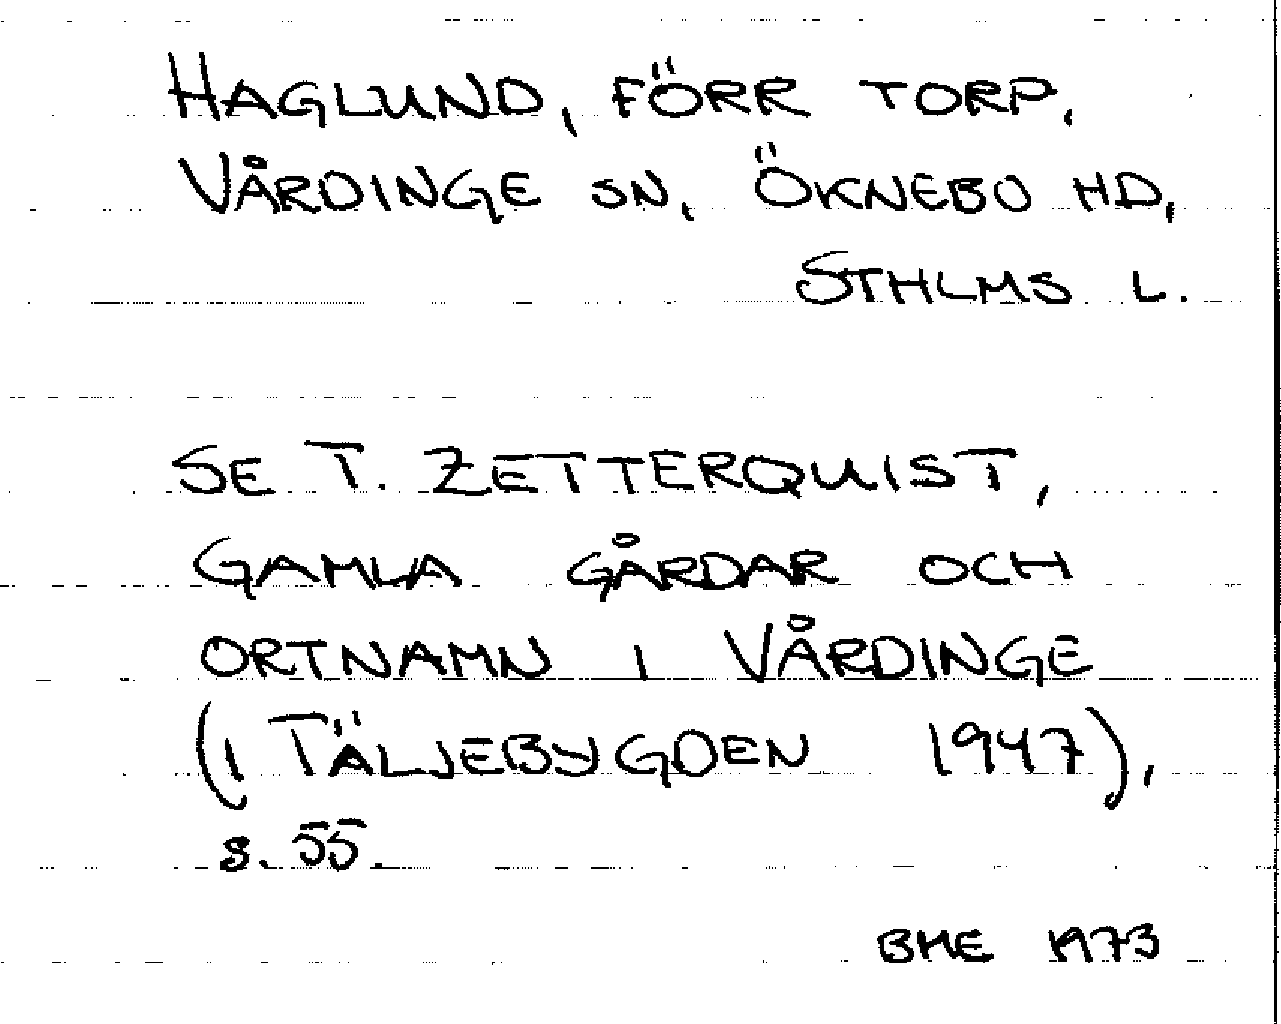 HAGLUND, FÖRR TORP,
VÅRDINGE SN, ÖKNEBO HD,
STHLMS L.
SE T. ZETTERQUIST,
GAMLA GÅRDAR OCH
ORTNAMN I VÅRDINGE
(I TÄLJEBYGDEN 1947),
S. 55.
BME 1973